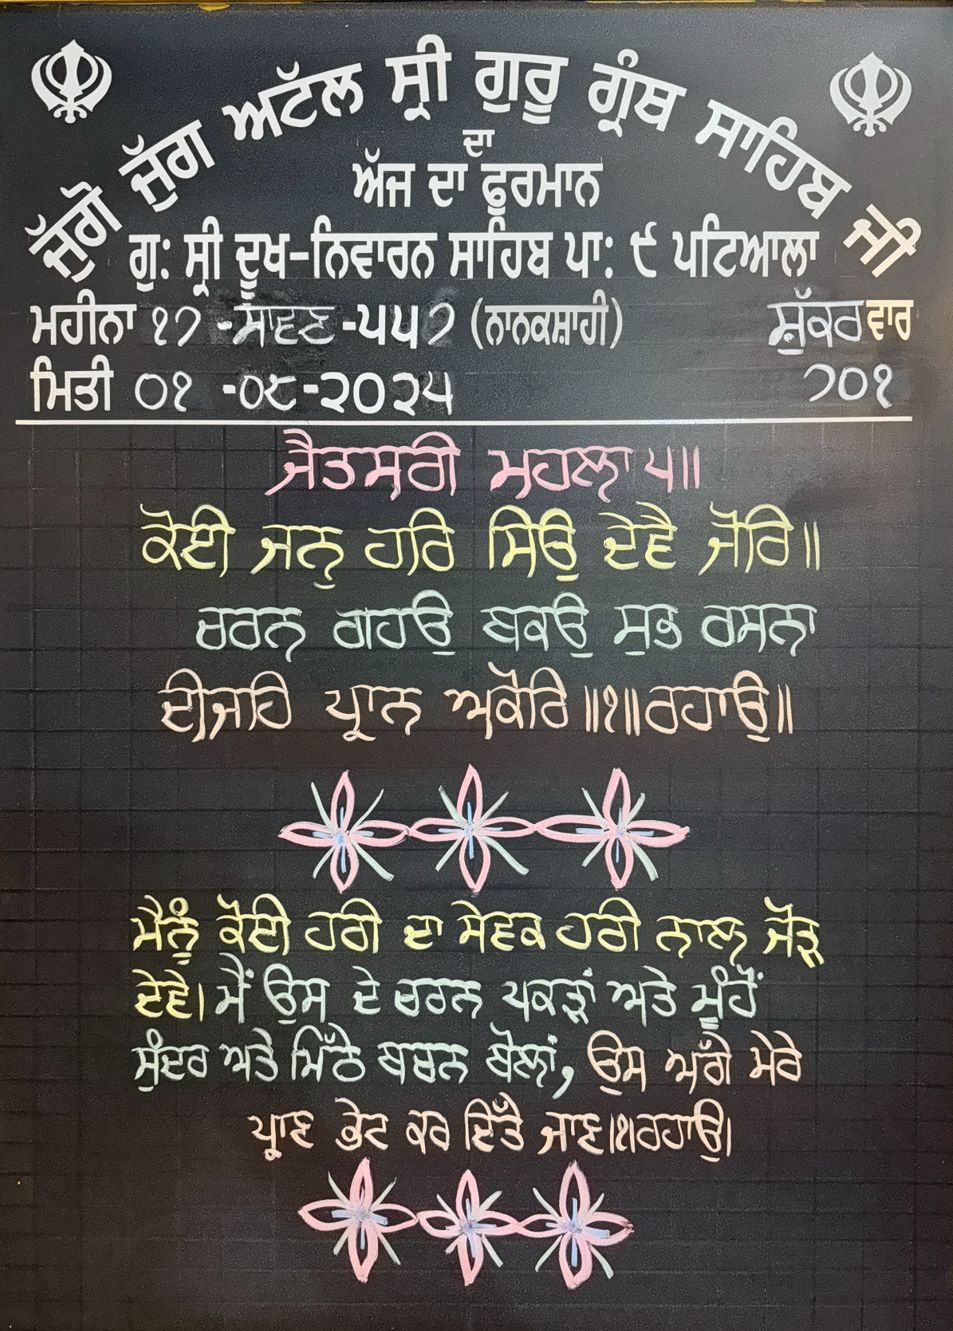 ਜੁੱਗੋ ਜੁੱਗ ਅਟੱਲ ਸ੍ਰੀ ਗੁਰੂ ਗ੍ਰੰਥ ਸਾਹਿਬ ਜੀ
ਦਾ
ਅੱਜ ਦਾ ਫੁਰਮਾਨ
ਗੁ: ਸ੍ਰੀ ਦੂਖ-ਨਿਵਾਰਨ ਸਾਹਿਬ ਪਾ: ੯ ਪਟਿਆਲਾ
ਮਹੀਨਾ ੧੭ -ਸਾਵਣ -੫੫੭ (ਨਾਨਕਸ਼ਾਹੀ) ਸ਼ੁੱਕਰਵਾਰ
ਮਿਤੀ ੦੧ -੦੮-੨੦੨੫ ੭੦੧
ਜੈਤਸਰੀ ਮਹਲਾ ੫॥
ਕੋਈ ਜਨੁ ਹਰਿ ਸਿਉ ਦੇਵੈ ਜੋਰਿ॥
ਚਰਨ ਗਹਉ ਬਕਉ ਸੁਭ ਰਸਨਾ
ਦੀਜਹਿ ਪ੍ਰਾਨ ਅਕੋਰਿ॥੧॥ਰਹਾਉ॥
ਮੈਨੂੰ ਕੋਈ ਹਰੀ ਦਾ ਸੇਵਕ ਹਰੀ ਨਾਲ ਜੋੜ
ਦੇਵੇ। ਮੈਂ ਉਸ ਦੇ ਚਰਨ ਪਕੜਾਂ ਅਤੇ ਮੂੰਹੋਂ
ਸੁੰਦਰ ਅਤੇ ਮਿੱਠੇ ਬਚਨ ਬੋਲਾਂ, ਉਸ ਅੱਗੇ ਮੇਰੇ
ਪ੍ਰਾਣ ਭੇਟ ਕਰ ਦਿੱਤੇ ਜਾਣ।੧।ਰਹਾਉ।